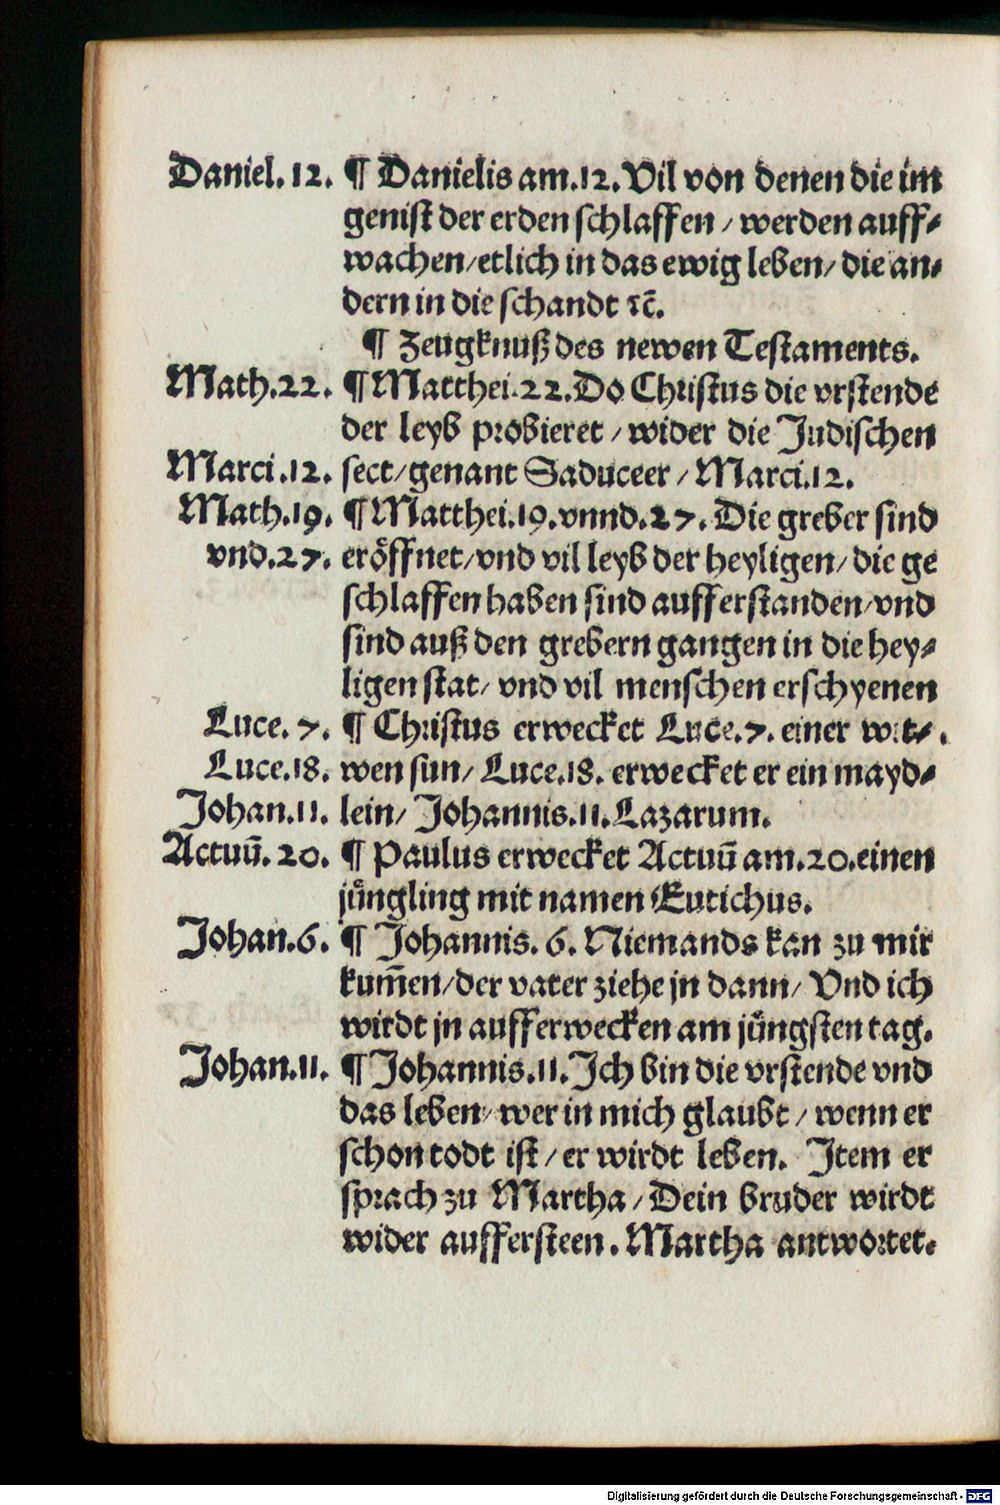 Daniel. 12. ¶ Danielis am .12. Vil von denen die im
genist der erden schlaffen / werden auff⸗
wachen / etlich in das ewig leben / die an⸗
dern in die schandt ꝛc̄.
¶ Zeugknuß des newen Testaments.
Math.22. ¶ Matthei.22. Do Christus die vrstende
der leyb probieret / wider die Judischen
Marci.12. sect / genant Saduceer / Marci.12.
Math.19. ¶ Matthei.19.vnnd.27. Die greber sind
vnd.27. eröffnet / vnd vil leyb der heyligen / die ge
schlaffen haben sind aufferstanden / vnd
sind auß den grebern gangen in die hey⸗
ligen stat / vnd vil menschen erschyenen
Luce. 7. ¶ Christus erwecket Luce.7. einer wit⸗
Luce.18. wen sun / Luce.18. erwecket er ein mayd⸗
Johan.11. lein / Johannis.11. Lazarum.
Actuū. 20. ¶ Paulus erwecket Actuū am.20.einen
jüngling mit namen Eutichus.
Johan.6. ¶ Johannis. 6. Niemands kan zu mir
kum̄en / der vater ziehe jn dann / Vnd ich
wirdt jn aufferwecken am jüngsten tag.
Johan.11. ¶ Johannis.11. Ich bin die vrstende vnd
das leben / wer in mich glaubt / wenn er
schon todt ist / er wirdt leben. Item er
sprach zu Martha / Dein bruder wirdt
wider auffersteen. Martha antwortet.
Digitalisierung gefördert durch die Deutsche Forschungsgemeinschaft - DFG